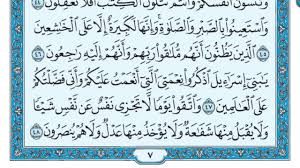 وَتَنسَوْنَ أَنفُسَكُمْ وَأَنتُمْ تَتْلُونَ ٱلْكِتَٰبَ أَفَلَا تَعْقِلُونَ ٤٤
وَٱسْتَعِينُوا۟ بِٱلصَّبْرِ وَٱلصَّلَوٰةِ وَإِنَّهَا لَكَبِيرَةٌ إِلَّا عَلَى ٱلْخَٰشِعِينَ
٤٥ ٱلَّذِينَ يَظُنُّونَ أَنَّهُم مُّلَٰقُوا۟ رَبِّهِمْ وَأَنَّهُمْ إِلَيْهِ رَٰجِعُونَ ٤٦
يَٰبَنِىٓ إِسْرَٰٓءِيلَ ٱذْكُرُوا۟ نِعْمَتِىَ ٱلَّتِىٓ أَنْعَمْتُ عَلَيْكُمْ وَأَنِّى فَضَّلْتُكُمْ
عَلَى ٱلْعَٰلَمِينَ ٤٧ وَٱتَّقُوا۟ يَوْمًا لَّا تَجْزِى نَفْسٌ عَن نَّفْسٍ شَيْـًٔا
وَلَا يُقْبَلُ مِنْهَا شَفَٰعَةٌ وَلَا يُؤْخَذُ مِنْهَا عَدْلٌ وَلَا هُمْ يُنصَرُونَ ٤٨
٧